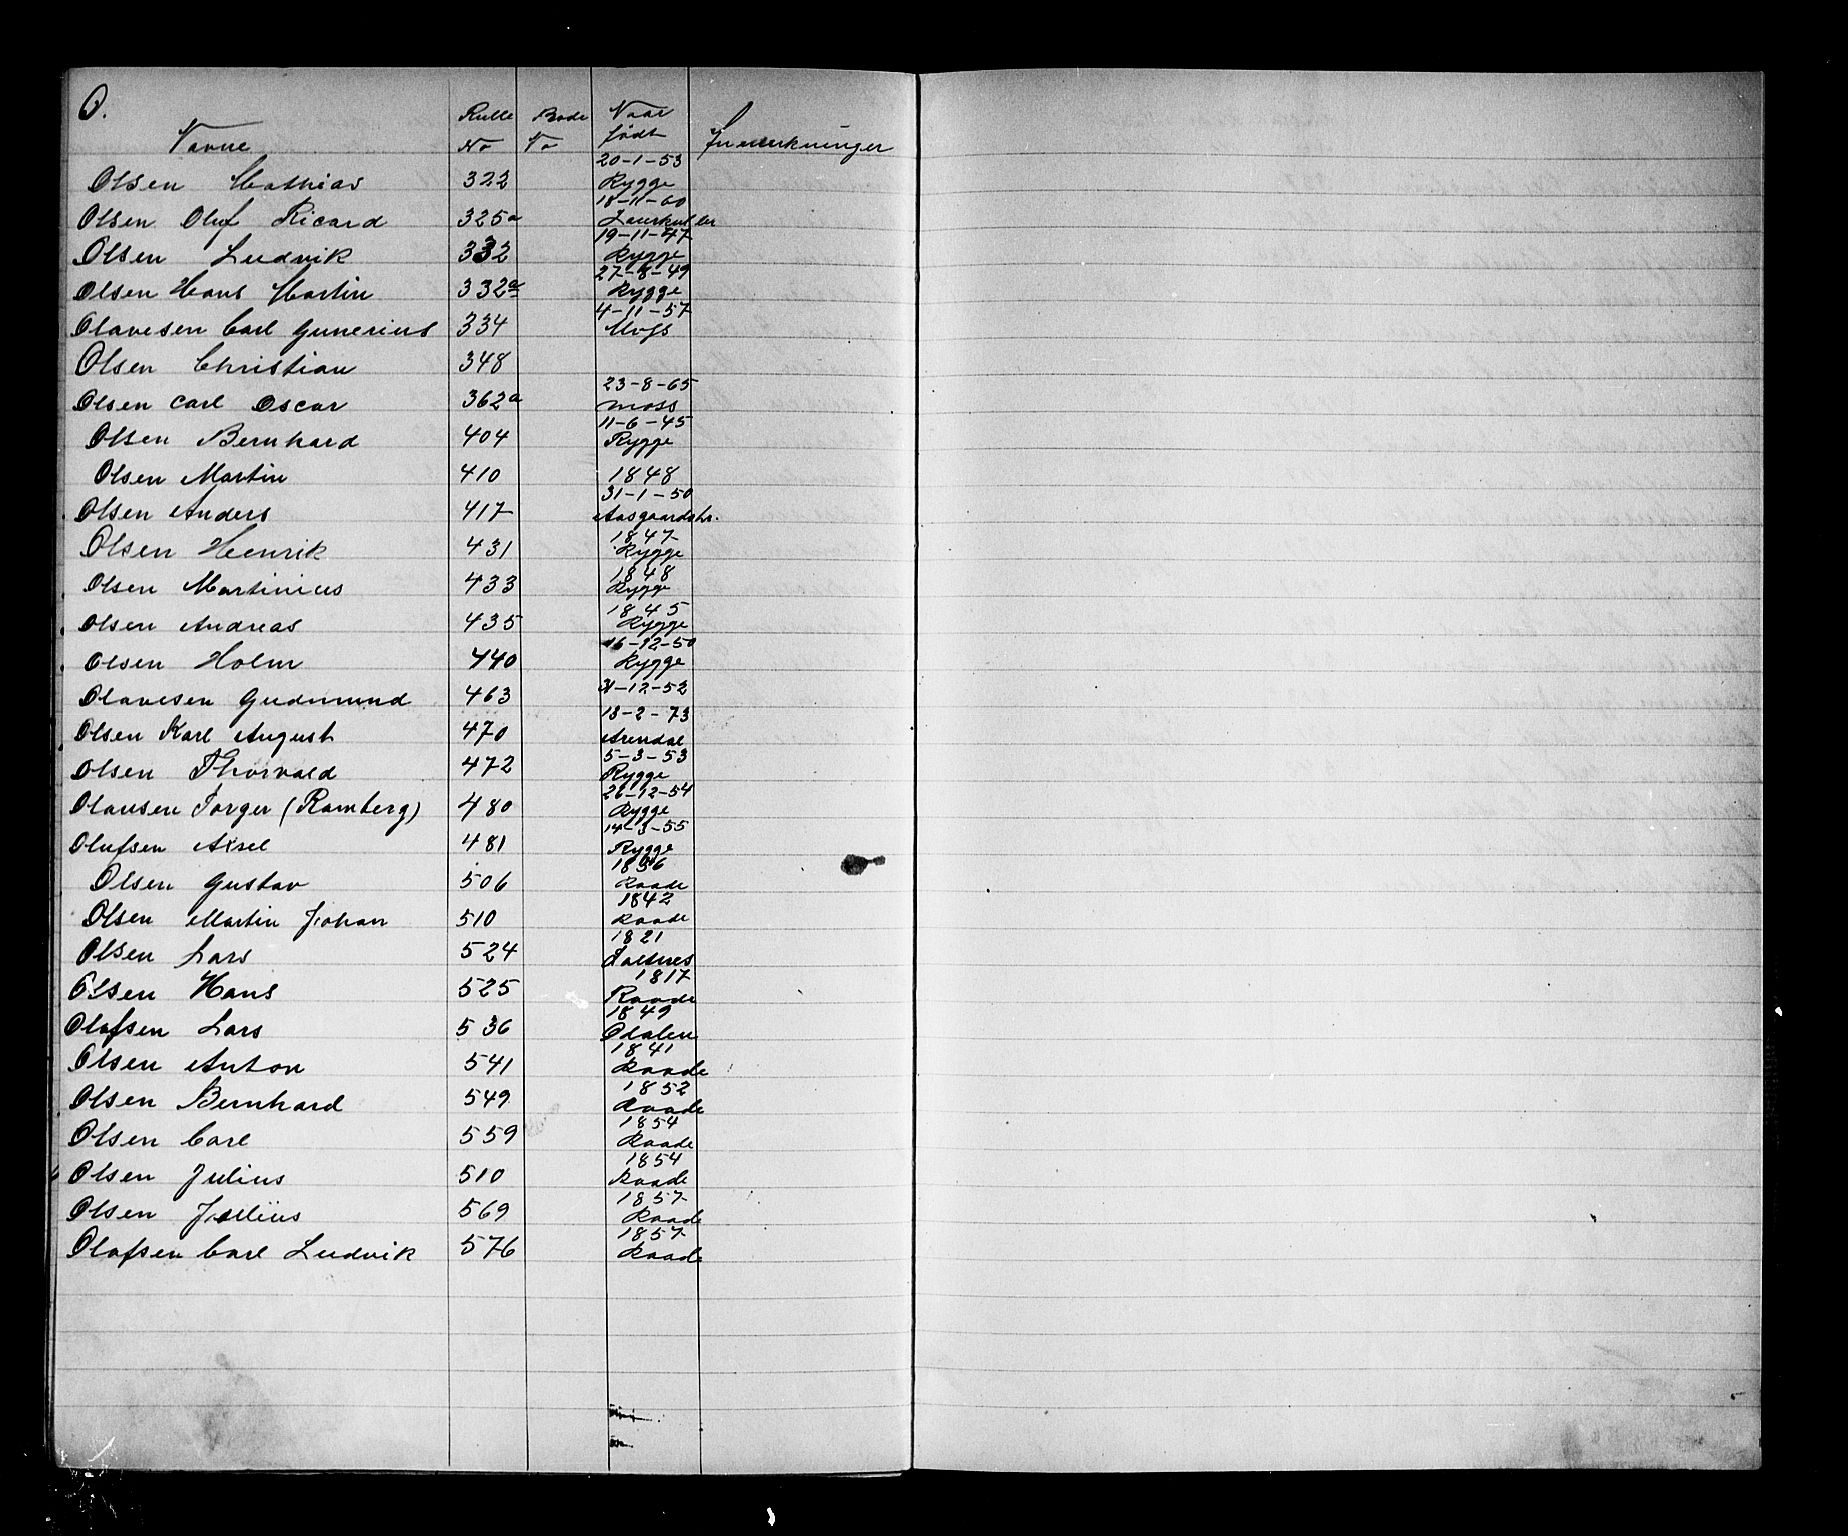 O.
Navne Rulle No Bode No Naar født Anmerkninger
Olsen Mathias 322 20-1-53 Rygge
Olsen Oluf Ricard 325a 18-11-60
Olsen Ludvik 332 19-11-47 Rygge
Olsen Hans Martin 332a 27-8-49 Rygge
Olavesen Carl Gunerius 334 4-11-57 Moss
Olsen Christian 348
Olsen Carl Oscar 362a 23-8-65 Moss
Olsen Bernhard 404 11-6-45 Rygge
Olsen Martin 410 1848
Olsen Anders 417 31-1-50 Aasgaardstr.
Olsen Henrik 431 1847 Rygge
Olsen Martinius 433 1848 Rygge
Olsen Andreas 435 1845 Rygge
Olsen Holm 440 16-12-50 Rygge
Olavesen Gudmund 463 31-12-52
Olsen Karl August 470 13-2-73 Arendal
Olsen Thorvald 472 5-3-53 Rygge
Olausen Torger (Ramberg) 480 26-12-54 Rygge
Olufsen Axel 481 14-3-55 Rygge
Olsen Gustav 506 1836 Raade
Olsen Martin Johan 510 1842 Raade
Olsen Lars 524 1821 Saltnes
Olsen Hans 525 1817 Raade
Olafsen Lars 536 1849 Odalen
Olsen Anton 541 1841 Raade
Olsen Bernhard 549 1852 Raade
Olsen Carl 559 1854 Raade
Olsen Julius 510 1854 Raade
Olsen Julius 569 1857 Raade
Olafsen Carl Ludvik 576 1857 Raade